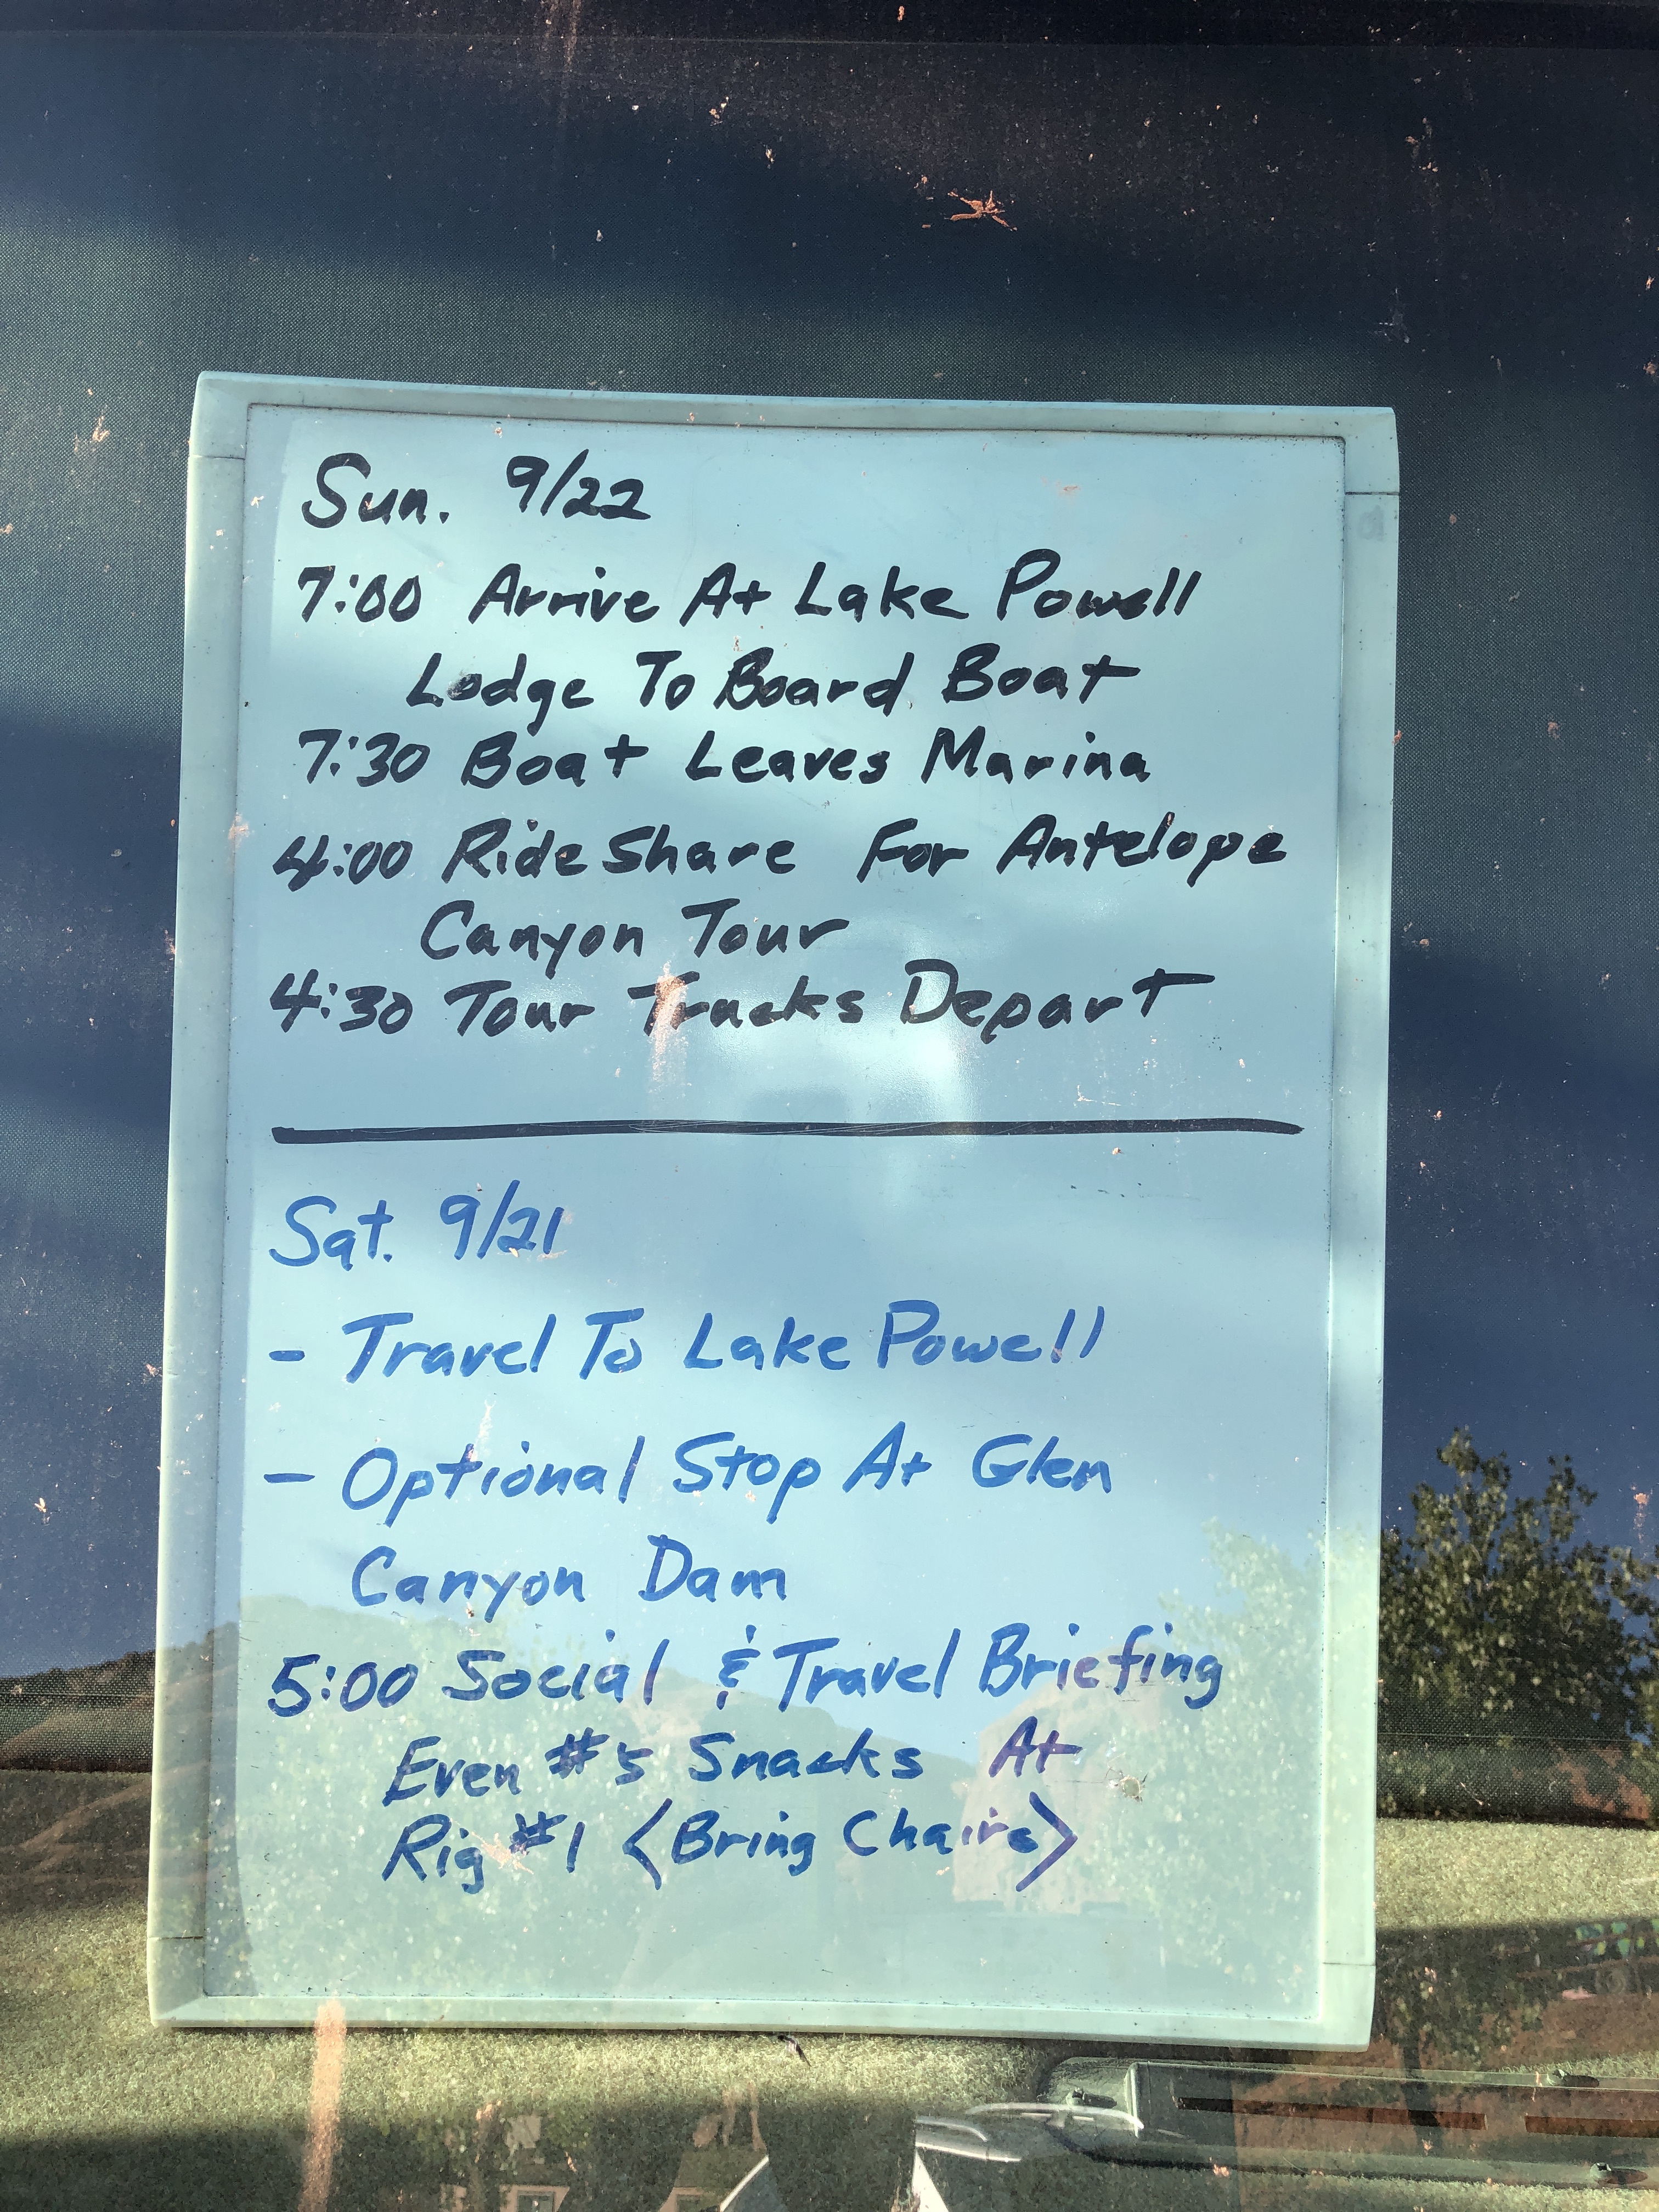 Sun. 9/22
7:00 Arrive At Lake Powell
Lodge To Board Boat
7:30 Boat Leaves Marina
4:00 Ride Share For Antelope
Canyon Tour
4:30 Tour Trucks Depart
Sat. 9/21
- Travel To Lake Powell
- Optional Stop At Glen
Canyon Dam
5:00 Social & Travel Briefing
Even #s Snacks At
Rig #1 <Bring Chairs>